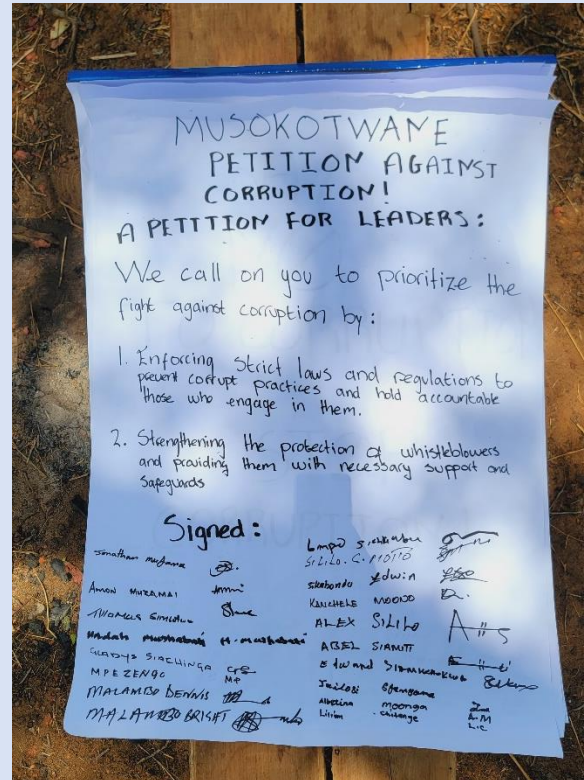 MUSOKOTWANE
PETITION AGAINST
CORRUPTION!
A PETITION FOR LEADERS:
We call on you to prioritize the
fight against corruption by:
1. Enforcing strict laws and regulations to
prevent corrupt practices and hold accountable
those who engage in them.
2. Strengthening the protection of whistleblowers
and providing them with necessary support and
safeguards
Signed:
Jonathan
AMON MUZAMAI
THOMAS
GLADYS SIACHINGA
MPEZENGO
MALAMBO DENNIS
MALAMBO BRIGHT
SILILO. C. MOTTO
Sikabondo Edwin
KANCHELE MOONO
ALEX SILILO
ABEL SIAMUTI
Edward
Albertina Moonga A.M
Livim Chilenge L.C